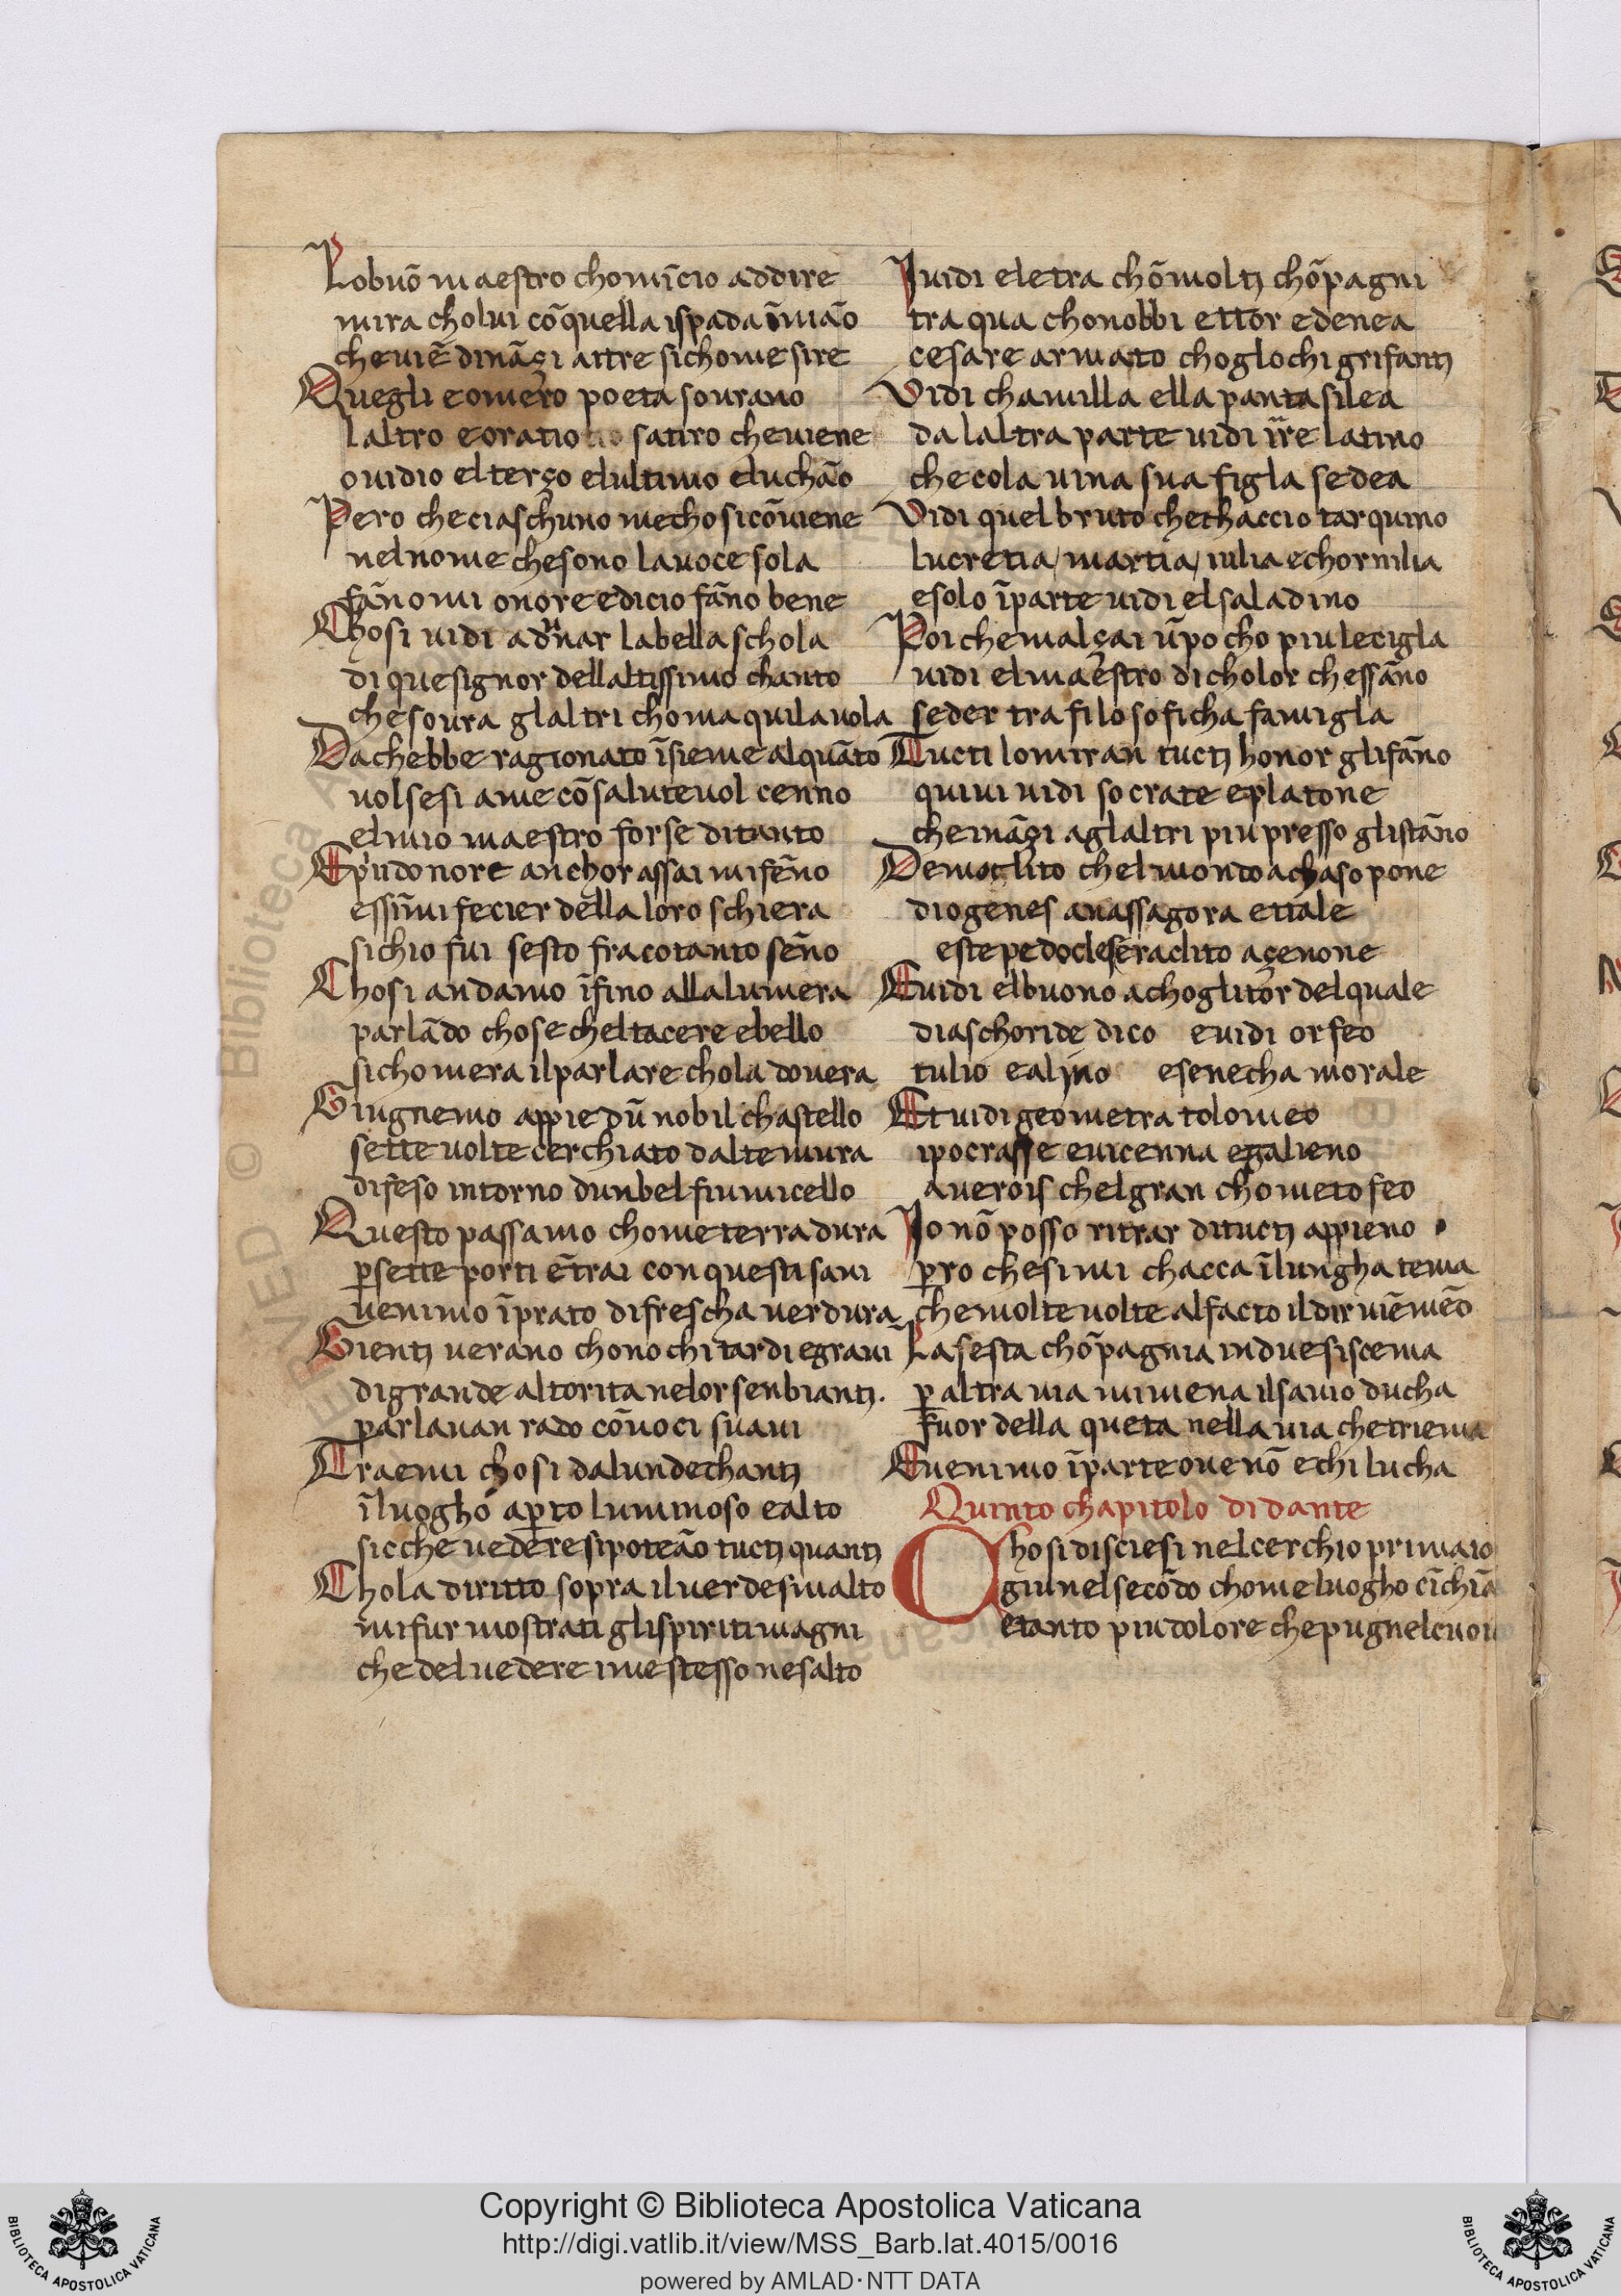 Lobuō maestro chomīcio addire
mira cholui cōquella ispada īmāo
cheuiē dināçi attre sichome sire
Quegli eomero poeta sourano
laltro eoratio satiro cheuiene
ouidio elterço elultimo eluchāo
Pero checiaschuno mecho sicōuiene
nelnome chesono lauoce sola
fānomi onore edicio fāno bene
Chosi uidi adunar labella schola
di quesignor dellaltissimo chanto
chesoura glaltri choma quilauola
Dachebbe ragionato īsieme alquāto
uolsesi ame cōsaluteuol cenno
elmio maestro forse ditanto
Epiudonore anchor assai mifēno
essīmi fecier della loro schiera
sichio fui sesto fracotanto sēno
Chosi andamo īfino allalumera
parlādo chose cheltacere ebello
sichomera ilparlare chola douera
Giugnemo appie dū nobil chastello
sette uolte cerchiato daltemura
difeso intorno dunbel fiumicello
Questo passamo chome terra dura
p̄sette porti ētrai con questi saui
uenimo īprato difrescha uerdura
Gienti uerano chonochi tardi egraui
di grande altorita nelor senbianti.
parlauan rado cōuoci suaui
Traemi chosi dalundechanti
īluogho ap̄to luminoso ealto
sicche uedere sipoteāo tucti quanti
Chola diritto sopra iluerde smalto
mifur mostrati glispiriti magni
che deluedere imestesso nesalto
Iuidi eletra chōmolti chōpagni
tra qua chonobbi ettor edenea
cesare armato choglochi grifanti
Vidi chamilla ella pantasilea
da laltra parte uidi ire latino
checola uina sua figla sedea
Vidi quel bruto chechaccio tarquino
lucretia / martia / iulia echornilia
esolo īparte uidi elsaladino
Poi chemalçai ūpocho piulecigla
uidi elmaestro dicholor chessāno
seder tra filosoficha famigla
Tucti lomiran tucti honor glifāno
quiui uidi socrate eplatone
chenāçi aglaltri piu presso glistāno
Democlito chelmondo achaso pone
diogenes anassagora ettale
estepedocleseraclito açenone
Euidi elbuono achoglitor delquale
diaschoride dico euidi orfeo
tulio ealino esenecha morale
Et uidi geometra tolomeo
ipocrasse euicenna egalieno
auerois chelgran chometo feo
Io nō posso ritrar ditucti appieno
p̄ro chesimi chacca īlungha tema
chemolte uolte alfacto ildir uiēmēo
La sesta chōpagnia indue siscema
p̄ altra uia mimena ilsauio ducha
fuor della queta nella uia chetriema
Euenimo īparte oue nō echi lucha
Quinto chapitolo di dante
Chosi disciesi nel cerchio primaio
giu nel secōdo chome luogho cīchiā
etanto piu dolore chepugnel
Copyright © Biblioteca Apostolica Vaticana
http://digi.vatlib.it/view/MSS_Barb.lat.4015/0016
powered by AMLAD·NTT DATA
BIBLIOTECA APOSTOLICA VATICANA
BIBLIOTECA APOSTOLICA VATICANA